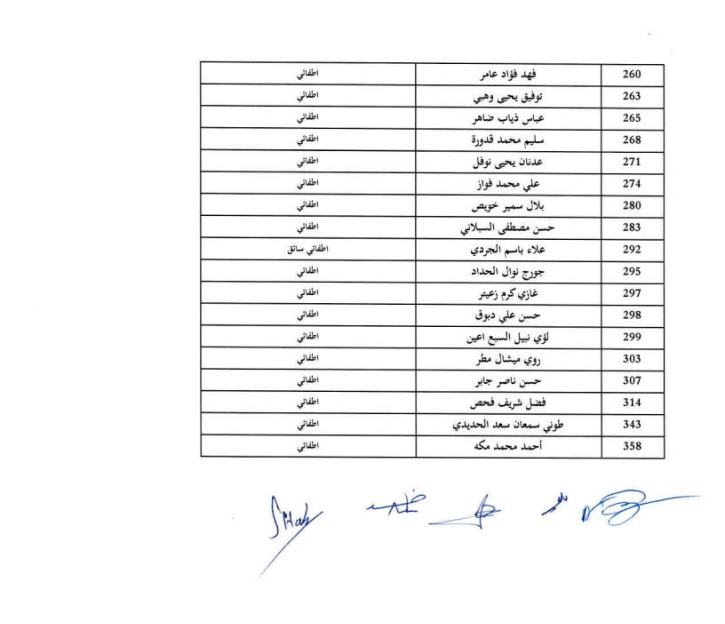 260 فهد فؤاد عامر اطفائي
263 توفيق يحيى وهبي اطفائي
265 عباس ذياب ضاهر اطفائي
268 سليم محمد قدورة اطفائي
271 عدنان يحيى نوفل اطفائي
274 علي محمد فواز اطفائي
280 بلال سمير خويص اطفائي
283 حسن مصطفى السبلاني اطفائي
292 علاء باسم الجردي اطفائي سائق
295 جورج نوال الحداد اطفائي
297 غازي كرم زعيتر اطفائي
298 حسن علي دبوق اطفائي
299 لؤي نبيل السبع اعين اطفائي
303 روي ميشال مطر اطفائي
307 حسن ناصر جابر اطفائي
314 فضل شريف فحص اطفائي
343 طوني سمعان سعد الحديدي اطفائي
358 أحمد محمد مكه اطفائي